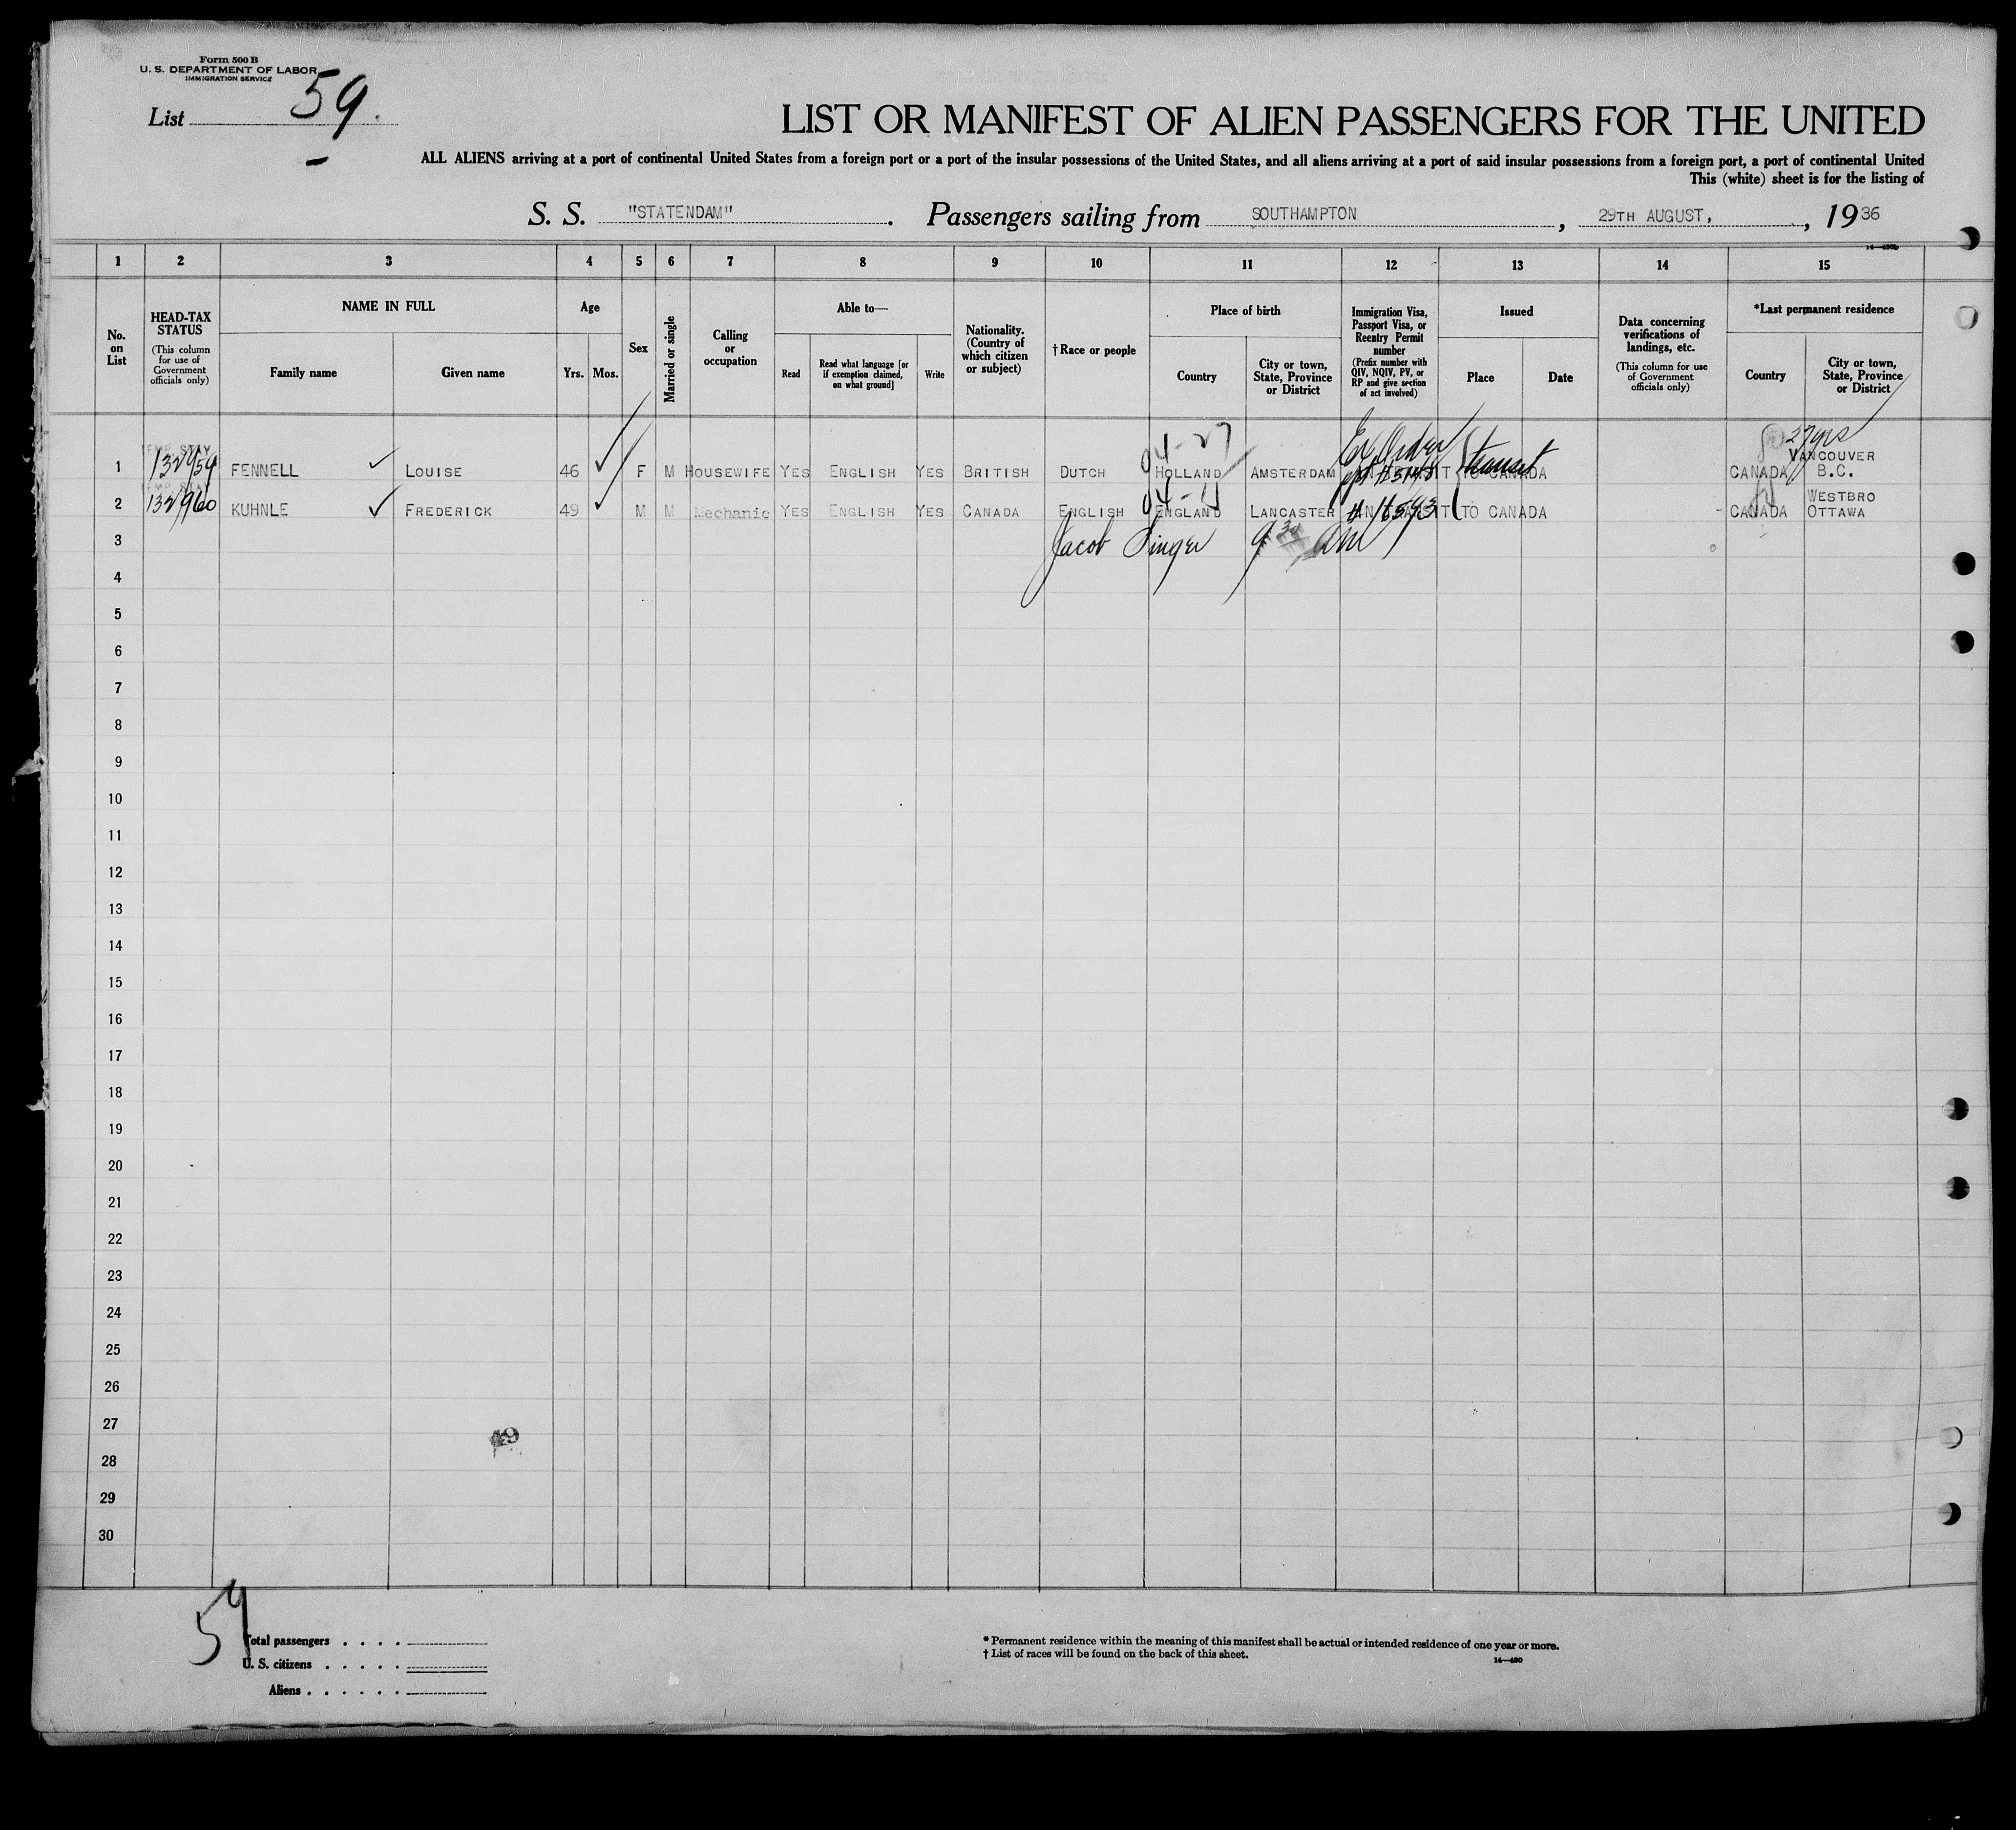 Form 500 B
U. S. DEPARTMENT OF LABOR
IMMIGRATION SERVICE
List 59.
LIST OR MANIFEST OF ALIEN PASSENGERS FOR THE UNITED
ALL ALIENS arriving at a port of continental United States from a foreign port or a port of the insular possessions of the United States, and all aliens arriving at a port of said insular possessions from a foreign port, a port of continental United
This (white) sheet is for the listing of
S. S. "STATENDAM". Passengers sailing from SOUTHAMPTON, 29TH AUGUST, , 1936
1 2 3 4 5 6 7 8 9 10 11 12 13 14 15
No. on List
HEAD-TAX STATUS
(This column for use of Government officials only)
NAME IN FULL
Family name
Given name
Age
Yrs.
Mos.
Sex
Married or single
Calling or occupation
Able to—
Read
Read what language [or if exemption claimed, on what ground]
Write
Nationality. (Country of which citizen or subject)
† Race or people
Place of birth
Country
City or town, State, Province or District
Immigration Visa, Passport Visa, or Reentry Permit number
(Prefix number with QIV, NQIV, PV, or RP and give section of act involved)
Issued
Place
Date
Data concerning verifications of landings, etc.
(This column for use of Government officials only)
*Last permanent residence
Country
City or town, State, Province or District
27 yrs
1 FENNELL LOUISE 46 F M HOUSEWIFE YES ENGLISH YES BRITISH DUTCH HOLLAND AMSTERDAM Ex Order transit TO CANADA CANADA VANCOUVER B.C.
2 KUHNLE FREDERICK 49 M M Mechanic YES ENGLISH YES CANADA ENGLISH ENGLAND LANCASTER TO CANADA CANADA WESTBRO OTTAWA
3 Jacob Singer 9 30 AM
4
5
6
7
8
9
10
11
12
13
14
15
16
17
18
19
20
21
22
23
24
25
26
27
28
29
30
59
Total passengers
U. S. citizens
Aliens
* Permanent residence within the meaning of this manifest shall be actual or intended residence of one year or more.
† List of races will be found on the back of this sheet.
14—480